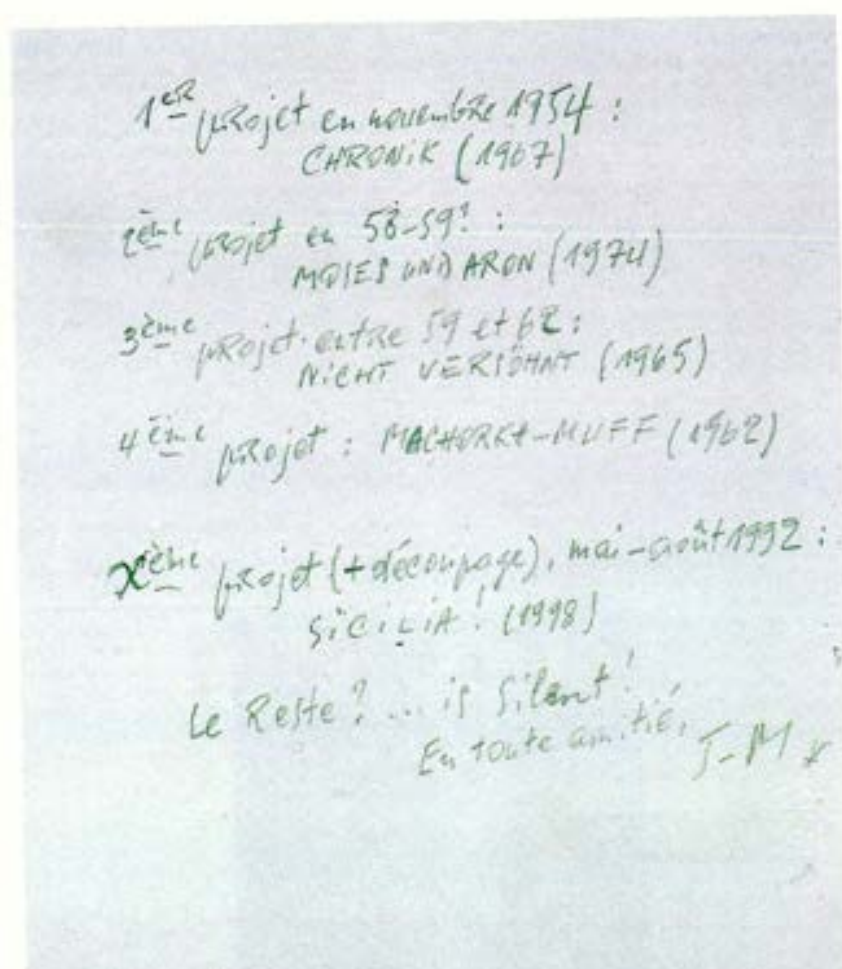 1er projet en novembre 1954 :
CHRONIK (1967)
2ème projet en 58-59? :
MOSES UND ARON (1974)
3ème projet entre 59 et 62 :
NICHT VERSÖHNT (1965)
4ème projet : MACHORKA-MUFF (1962)
Xème projet (+ découpage), mai-août 1992 :
SICILIA! (1998)
Le Reste? ... is silent!
En toute amitié,
J-M